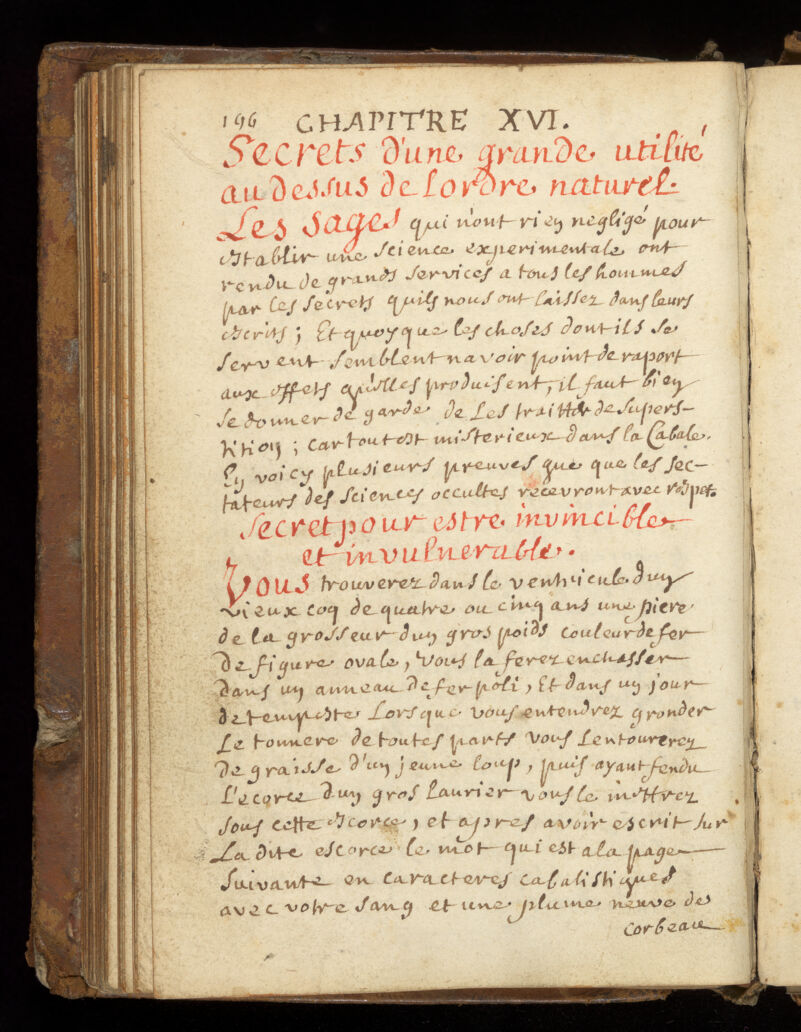 196 CHAPITRE XVI.
Secrets d'une grande utilité
au dessus de lordre naturel.
Les Sages qui n'ont rien negligé pour
establir une science experimentale ont
rendu de grands services a tous les hommes
par les secrets quils nous ont laissez dans leurs
escrits ; Et quoyque les choses dont ils se
servent semblent navoir point de raport
aux effets qu'elles produisent, il faut bien
se donner de garde de les traitter de supers-
tition ; car tout est misterieux dans la Cabale.
En voicy plusieurs preuves que que les sec-
tateurs des sciences occultes recevront avec respet.
Secret pour estre invincible
et invulnerable.
Vous trouverez dans le ventricule dun
vieux coq de quatre ou cinq ans une piere
de la grosseur dun gros poids couleur de fer
de figure ovale, vous la ferez enchasser
dans un anneau de fer poli, Et dans un jour
de tempeste lorsque vous entendrez gronder
le tonnere de toutes parts vous lentourerez
de graisse d'un jeune loup, puis ayant fendu
l'ecorce dun gros laurier vous le mettrez
sous cette escorce, et apres avoir escrit sur
la dite escorce le mot qui est a la page
suivante en caracteres cabalistiques
avec votre sang et une plume neuve de
corbeau